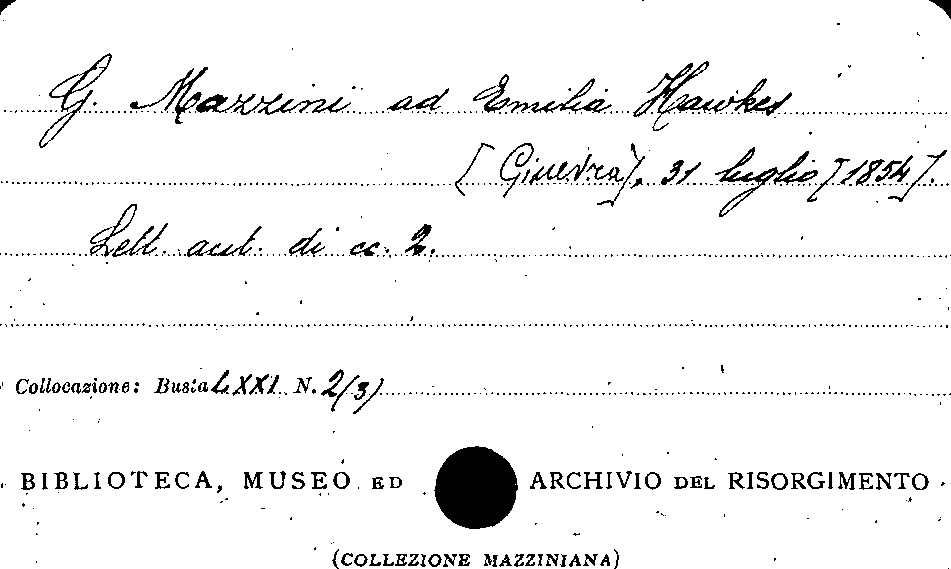 G. Mazzini ad Emilia Hawkes
[Ginevra], 31 luglio [1854].
Lett. aut. di cc. 2.
Collocazione: Busta LXXI N. 2(3)
BIBLIOTECA, MUSEO ED ARCHIVIO DEL RISORGIMENTO
(COLLEZIONE MAZZINIANA)